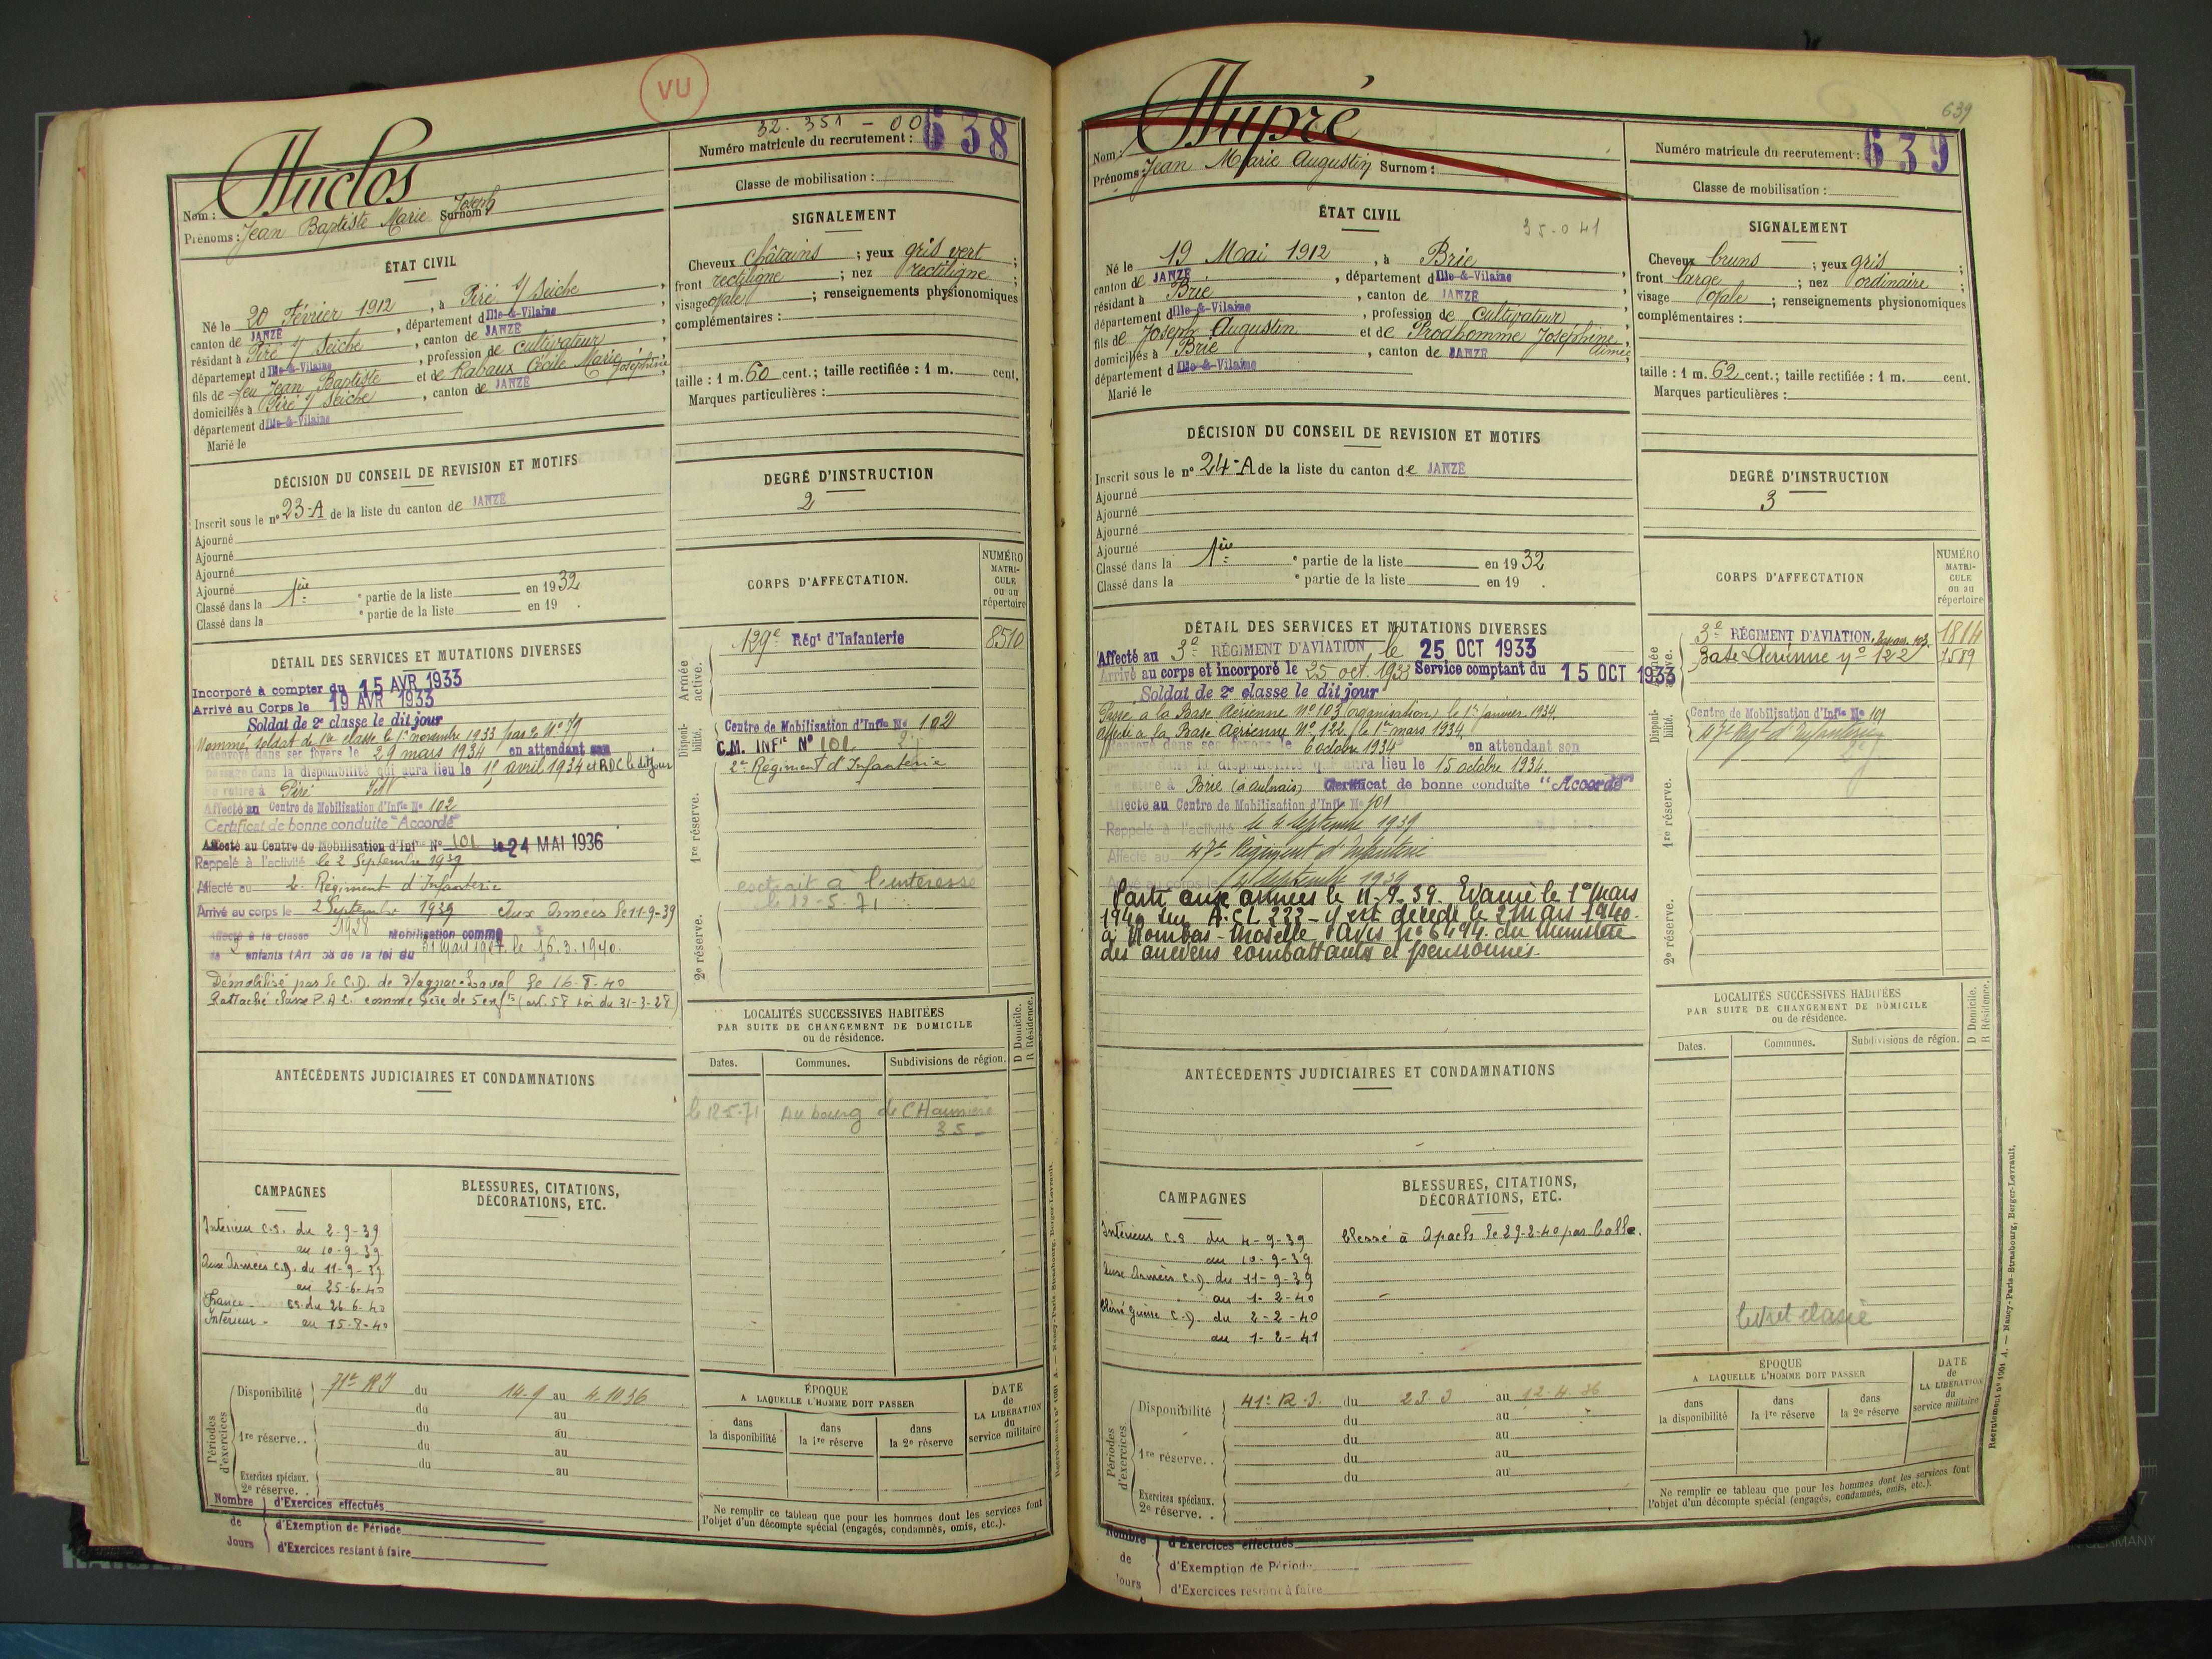 VU
32. 351 - 00
Numéro matricule du recrutement : 638
Classe de mobilisation :
Nom : Duclos
Prénoms : Jean Baptiste Marie Joseph Surnom :
ÉTAT CIVIL
Né le 20 Février 1912, à Piré s/ Seiche,
canton de JANZÉ, département d Ille-&-Vilaine,
résidant à Piré s/ Seiche, canton de JANZÉ,
département d Ille-&-Vilaine, profession de cultivateur,
fils de feu Jean Baptiste et de Rabaux Cécile Marie Joséphine,
domiciliés à Piré s/ Seiche, canton de JANZÉ
département d Ille-&-Vilaine
Marié le
DÉCISION DU CONSEIL DE REVISION ET MOTIFS
Inscrit sous le nº 23-A de la liste du canton de JANZÉ
Ajourné
Ajourné
Ajourné
Ajourné
Classé dans la 1ère e partie de la liste en 1932
Classé dans la e partie de la liste en 19 .
DÉTAIL DES SERVICES ET MUTATIONS DIVERSES
Incorporé à compter du 15 AVR 1933
Arrivé au Corps le 19 AVR 1933
Soldat de 2e classe le dit jour
Nommé soldat de 1re classe le 1er novembre 1933
Renvoyé dans ses foyers le 29 mars 1934 en attendant son
passage dans la disponibilité qui aura lieu le 15 avril 1934 et RDC le dit jour
Se retire à Piré
Affecté au Centre de Mobilisation d'Infie No 102
Certificat de bonne conduite "Accordé"
Affecté au Centre de Mobilisation d'Infie No 101 le 24 MAI 1936
Rappelé à l'activité le 2 Septembre 1939
Affecté au 2e Régiment d'Infanterie
Arrivé au corps le 2 Septembre 1939 Aux Armées le 11-9-39
Affecté à la classe 1928 Mobilisation comme
de 2 enfants (Art 58 de la loi du 31 Mars 1927. le 16.3.1940.
Démobilisé par le C.D. de Magnac-Laval le 16-8-40
Rattaché classe P.A.L. comme père de 5 enfts (art. 58 loi du 31-3-28)
ANTÉCÉDENTS JUDICIAIRES ET CONDAMNATIONS
CAMPAGNES
Intérieur C.S. du 2-9-39
au 10-9-39
Aux Armées C.D. du 11-9-39
au 25-6-40
France - CS. du 26-6-40
Intérieur - au 15-8-40
BLESSURES, CITATIONS,
DÉCORATIONS, ETC.
Périodes d'exercices
Disponibilité 71e RI du 14-9 au 4.10 36
du au
1re réserve.. du au
du au
du au
Exercices spéciaux.
2e réserve. .
Nombre de Jours
d'Exercices effectués
d'Exemption de Période
d'Exercices restant à faire
SIGNALEMENT
Cheveux châtains ; yeux gris vert ;
front rectiligne ; nez rectiligne ;
visage ovale ; renseignements physionomiques
complémentaires :
taille : 1 m. 60 cent.; taille rectifiée : 1 m. cent.
Marques particulières :
DEGRÉ D'INSTRUCTION
2
CORPS D'AFFECTATION.
NUMÉRO MATRI-CULE ou au répertoire
Armée active.
129e Régt d'Infanterie 8510
Disponibilité.
Centre de Mobilisation d'Infie No 102
C.M. INFie No 101
2e Régiment d'Infanterie
1re réserve.
extrait à l'intéressé
le 12-5-71
2e réserve.
LOCALITÉS SUCCESSIVES HABITÉES
PAR SUITE DE CHANGEMENT DE DOMICILE
ou de résidence.
D Domicile.
R Résidence.
Dates. Communes. Subdivisions de région.
le 12-5-71 Au bourg de CHaumeré
35 -
ÉPOQUE
A LAQUELLE L'HOMME DOIT PASSER
DATE de LA LIBÉRATION du service militaire
dans la disponibilité
dans la 1re réserve
dans la 2e réserve
Ne remplir ce tableau que pour les hommes dont les services font
l'objet d'un décompte spécial (engagés, condamnés, omis, etc.).
Recrutement nº 1001 A. — Nancy-Paris-Strasbourg, Berger-Levrault.
639
Nom : Dupré
Prénoms : Jean Marie Augustin Surnom :
Numéro matricule du recrutement : 639
Classe de mobilisation :
ÉTAT CIVIL
35-041
Né le 19 Mai 1912, à Brie,
canton de JANZÉ, département d Ille-&-Vilaine,
résidant à Brie, canton de JANZÉ
département d Ille-&-Vilaine, profession de cultivateur,
fils de Joseph Augustin et de Prodhomme Joséphine Aimée,
domiciliés à Brie, canton de JANZÉ
département d Ille-&-Vilaine
Marié le
DÉCISION DU CONSEIL DE REVISION ET MOTIFS
Inscrit sous le nº 24-A de la liste du canton de JANZÉ
Ajourné
Ajourné
Ajourné
Ajourné
Classé dans la 1ère e partie de la liste en 1932
Classé dans la e partie de la liste en 19 .
DÉTAIL DES SERVICES ET MUTATIONS DIVERSES
Affecté au 3e RÉGIMENT D'AVIATION, le 25 OCT 1933
Arrivé au corps et incorporé le 25 oct. 1933 Service comptant du 15 OCT 1933
Soldat de 2e classe le dit jour
Passé à la Base Aérienne Nº 103 (organisation) le 1er janvier 1934.
Affecté à la Base Aérienne Nº 122 le 1er mars 1934.
Renvoyé dans ses foyers le 6 octobre 1934 en attendant son
passage dans la disponibilité qui aura lieu le 15 octobre 1934.
Se retire à Brie (à aulnais) Certificat de bonne conduite "Accordé"
Affecté au Centre de Mobilisation d'Infie No 101
Rappelé à l'activité le 4 septembre 1939
Affecté au 47e Régiment d'Infanterie
Arrivé au corps le 4 Septembre 1939
Parti aux armées le 11-9-39. Evacué le 1er Mars
1940 sur A.C.L 222 - y est décédé le 2 Mars 1940.
à Rombas - Moselle. Avis nº 6494. du Ministère
des anciens combattants et pensionnés.
ANTÉCÉDENTS JUDICIAIRES ET CONDAMNATIONS
CAMPAGNES
Intérieur C.S. du 4-9-39
au 10-9-39
Aux Armées C.D. du 11-9-39
au 1-2-40
Bless Guerre C.D. du 2-2-40
au 1-2-41
BLESSURES, CITATIONS,
DÉCORATIONS, ETC.
blessé à Apach le 29-2-40 par balle.
Périodes d'exercices
Disponibilité 41e R.I. du 23.3 au 12.4.36
du au
1re réserve.. du au
du au
du au
Exercices spéciaux.
2e réserve. .
Nombre de Jours
d'Exercices effectués
d'Exemption de Période
d'Exercices restant à faire
SIGNALEMENT
Cheveux bruns ; yeux gris ;
front large ; nez ordinaire ;
visage ovale ; renseignements physionomiques
complémentaires :
taille : 1 m. 62 cent.; taille rectifiée : 1 m. cent.
Marques particulières :
DEGRÉ D'INSTRUCTION
3
CORPS D'AFFECTATION
NUMÉRO MATRI-CULE ou au répertoire
Armée active.
3e RÉGIMENT D'AVIATION. 1814
Base Aérienne nº 122 7589
Disponibilité.
Centre de Mobilisation d'Infie No 101
47e Régt d'Infanterie
1re réserve.
2e réserve.
LOCALITÉS SUCCESSIVES HABITÉES
PAR SUITE DE CHANGEMENT DE DOMICILE
ou de résidence.
D Domicile.
R Résidence.
Dates. Communes. Subdivisions de région.
livret classé
ÉPOQUE
A LAQUELLE L'HOMME DOIT PASSER
DATE de LA LIBÉRATION du service militaire
dans la disponibilité
dans la 1re réserve
dans la 2e réserve
Ne remplir ce tableau que pour les hommes dont les services font
l'objet d'un décompte spécial (engagés, condamnés, omis, etc.).
Recrutement nº 1001 A. — Nancy-Paris-Strasbourg, Berger-Levrault.
GERMANY